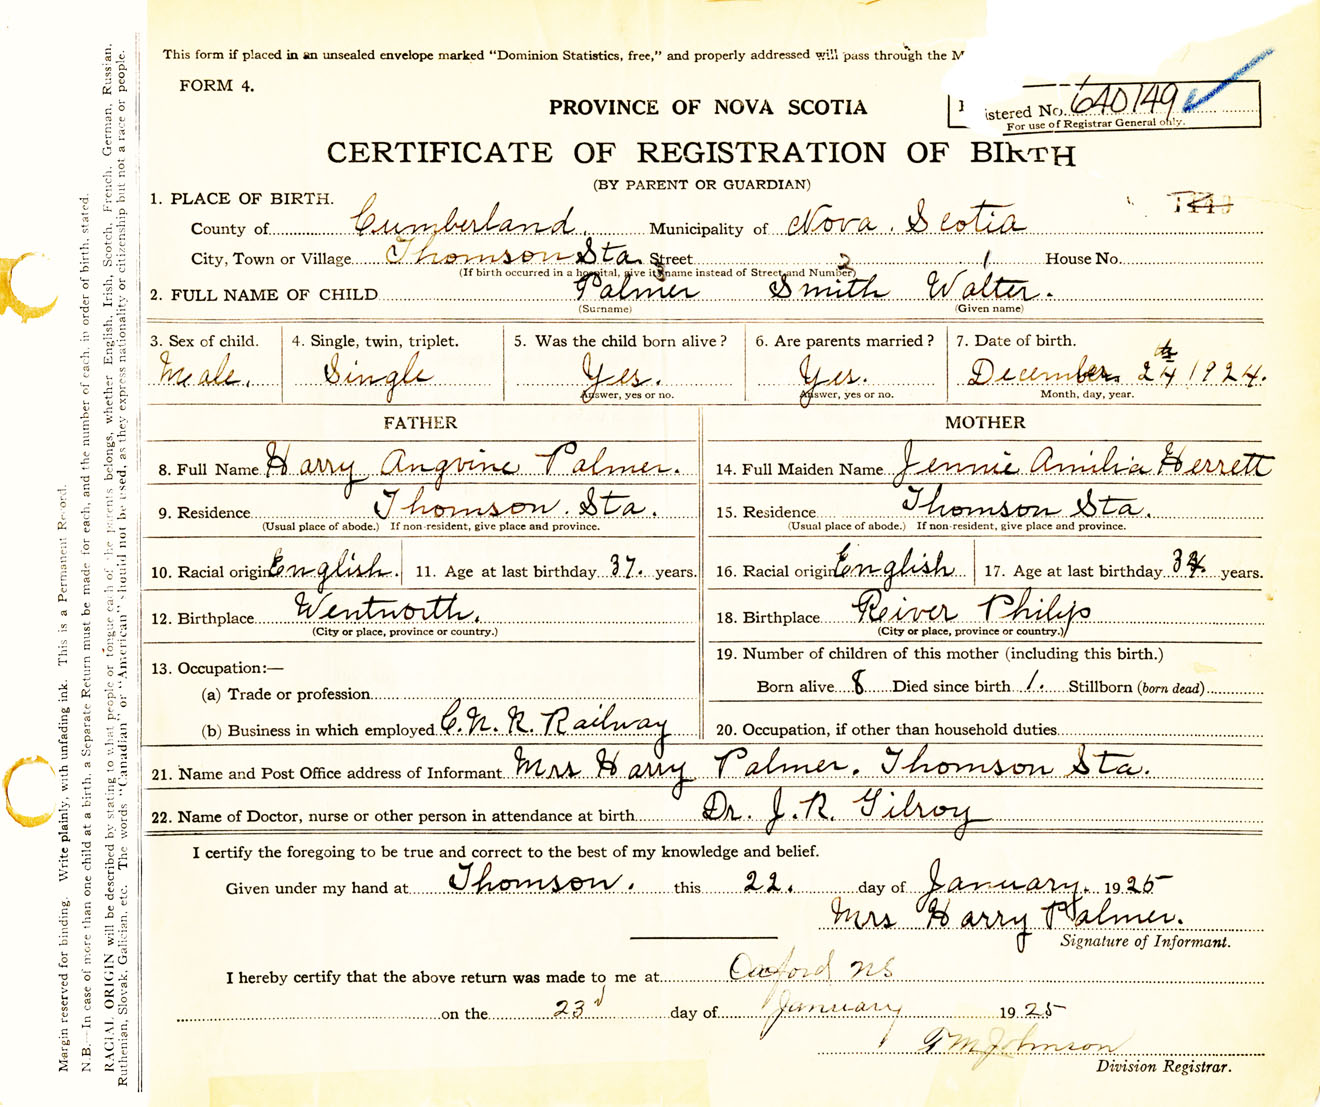 This form if placed in an unsealed envelope marked "Dominion Statistics, free," and properly addressed will pass through the M
FORM 4.
PROVINCE OF NOVA SCOTIA
istered No. 640149
For use of Registrar General only.
CERTIFICATE OF REGISTRATION OF BIRTH
(BY PARENT OR GUARDIAN)
1. PLACE OF BIRTH.
County of Cumberland. Municipality of Nova. Scotia
City, Town or Village Thomson Sta. Street House No.
(If birth occurred in a hospital, give its name instead of Street and Number)
3 2 1
2. FULL NAME OF CHILD Palmer Smith Walter.
(Surname) (Given name)
3. Sex of child. 4. Single, twin, triplet. 5. Was the child born alive? 6. Are parents married? 7. Date of birth.
Meale. Single Yes. Yes. December 24th 1924.
Answer, yes or no. Answer, yes or no. Month, day, year.
FATHER MOTHER
8. Full Name Harry Angvine Palmer. 14. Full Maiden Name Jennie Amilia Herrett
9. Residence Thomson. Sta. 15. Residence Thomson Sta.
(Usual place of abode.) If non-resident, give place and province. (Usual place of abode.) If non-resident, give place and province.
10. Racial origin English. 11. Age at last birthday 37. years. 16. Racial origin English 17. Age at last birthday years.
12. Birthplace Wentworth. 18. Birthplace Reiver Philip
(City or place, province or country.) (City or place, province or country.)
13. Occupation:— 19. Number of children of this mother (including this birth.)
(a) Trade or profession Born alive 8 Died since birth 1. Stillborn (born dead)
(b) Business in which employed C.N.R. Railway 20. Occupation, if other than household duties
21. Name and Post Office address of Informant Mrs Harry Palmer. Thomson Sta.
22. Name of Doctor, nurse or other person in attendance at birth Dr. J. R. Gilroy
I certify the foregoing to be true and correct to the best of my knowledge and belief.
Given under my hand at Thomson. this 22. day of January. 1925
Mrs Harry Palmer.
Signature of Informant.
I hereby certify that the above return was made to me at Oxford NS
on the 23d day of January 1925
Johnson
Division Registrar.
Margin reserved for binding. Write plainly, with unfading ink. This is a Permanent Record.
N.B.—In case of more than one child at a birth, a Separate Return must be made for each, and the number of each, in order of birth, stated.
RACIAL ORIGIN will be described by stating to what people or tongue each of the parents belongs, whether English, Irish, Scotch, French, German, Russian,
Ruthenian, Slovak, Galician, etc. The words "Canadian" or "American" should not be used, as they express nationality or citizenship but not a race or people.